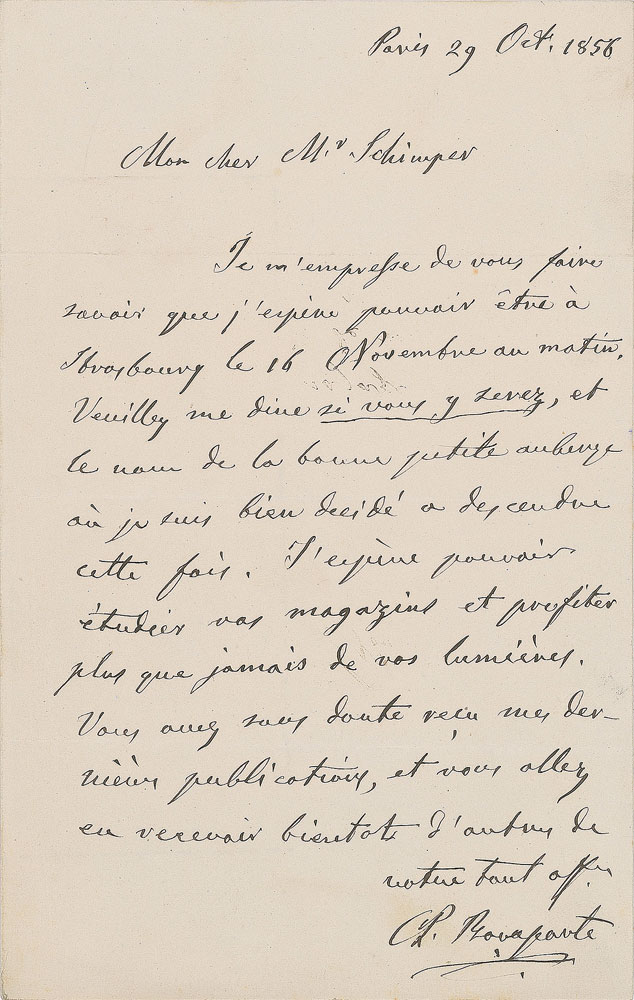 Paris 29 Oct. 1856
Mon cher Mr. Schimper
Je m'empresse de vous faire
savoir que j'espère pouvoir être à
Strasbourg le 16 Novembre au matin.
Veuillez me dire si vous y serez, et
le nom de la bonne petite auberge
où je suis bien decidé a descendre
cette fois. J'espère pouvoir
étudier vos magazins et profiter
plus que jamais de vos lumières.
Vous avez sans doute reçu mes der-
nières publications, et vous allez
en recevoir bientot d'autres de
votre tout aff.
C. Bonaparte